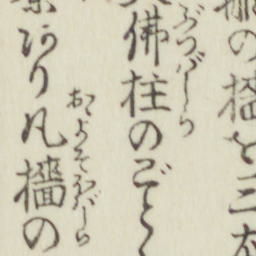 の檣を三
佛柱のごと
ぶつばしら
あり凡檣の
およそほばしら